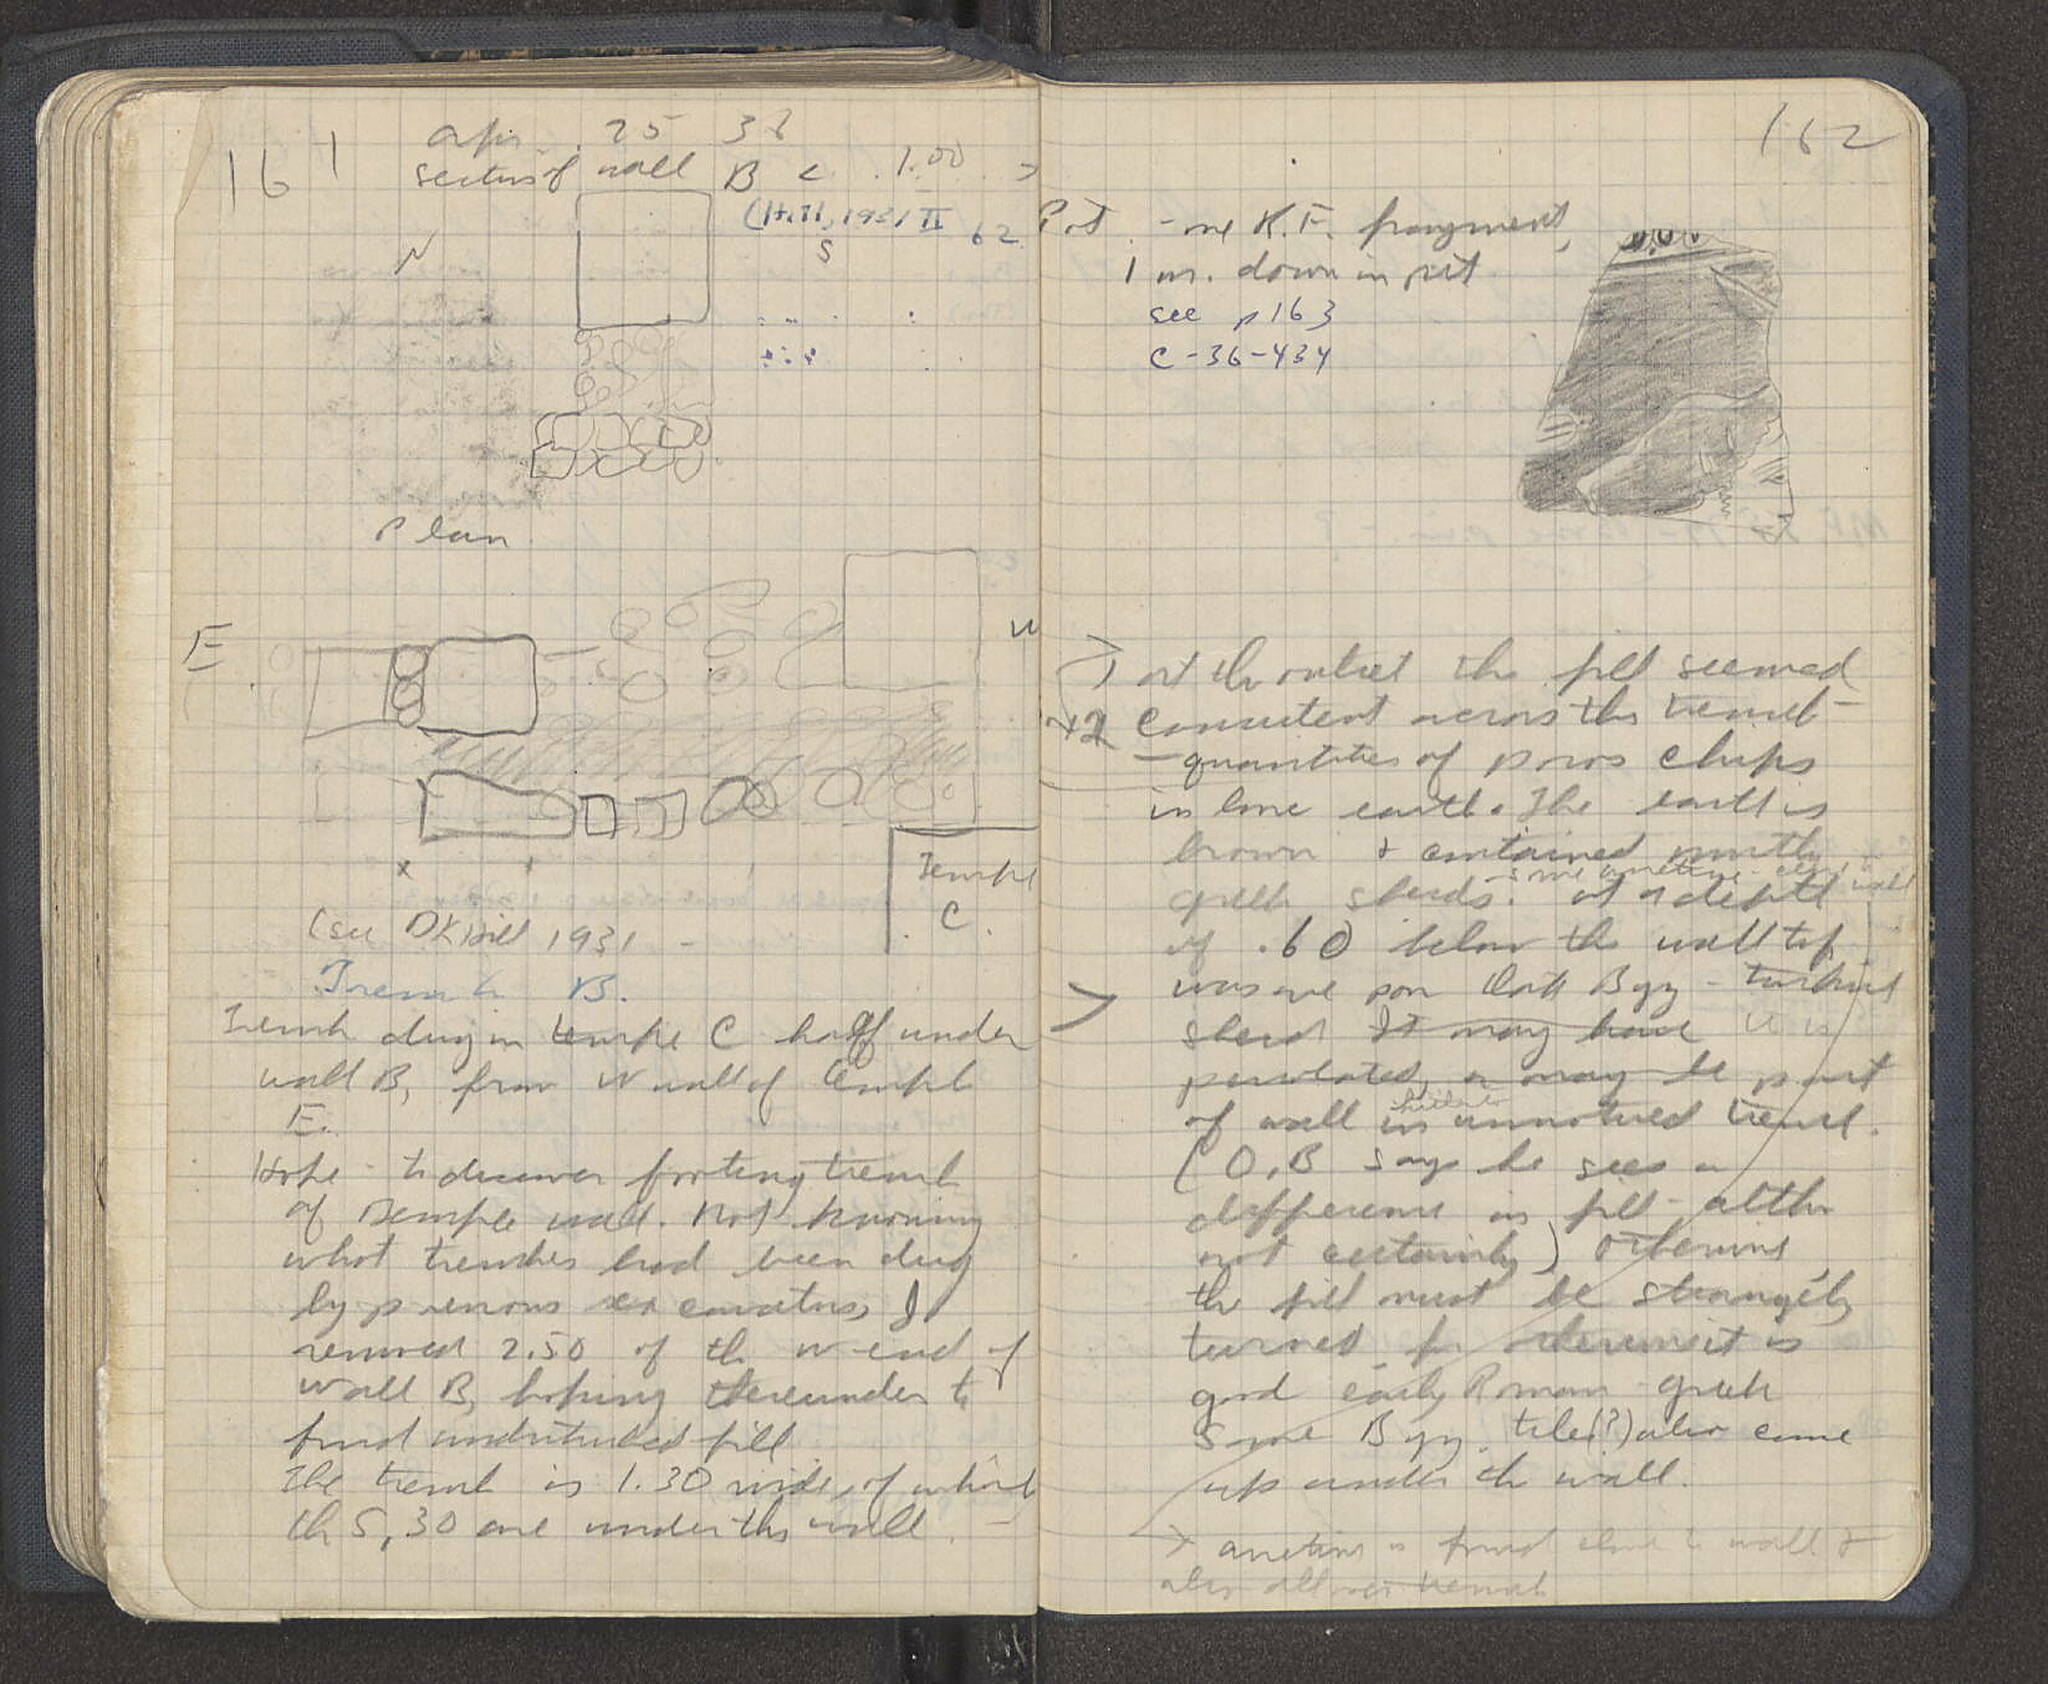 161
Apr. 25 36
section of wall B < 1.00 >
(Hill, 1931 II 62
N
S
Plan
E
W
Temple
C.
(see DKHill 1931 -
Trench B.
Trench dug in temple C half under
wall B, from W wall of temple
E.
Hope - to discover footing trench
of temple wall. Not knowing
what trenches had been dug
by previous excavators, I
removed 2.50 of the W end of
wall B, hoping thereunder to
find undisturbed fill
The trench is 1.30 wide, of which
the S .30 are under the wall.
162
Pot. - one R.F. fragment,
1 m. down in pit
see p163
C-36-434
1) at the outset the fill seemed
+2 consistent across the trench -
- quantities of poros chips
in loose earth. The earth is
brown + contained mostly
greek sherds. - some arretine - also wall
At a depth
of .60 below the wall top
was one Byz - turkish
sherd It may have It is
percolated, or may be part
of wall in hitherto unnoticed trench.
(O.B says he sees a
difference in fill - altho
not certainly) otherwise
the fill must be strangely
turned, for otherwise it is
good early Roman - greek
Some Byz. tiles(?) also come
up under the wall.
> arretine is found close to wall &
also all over trench